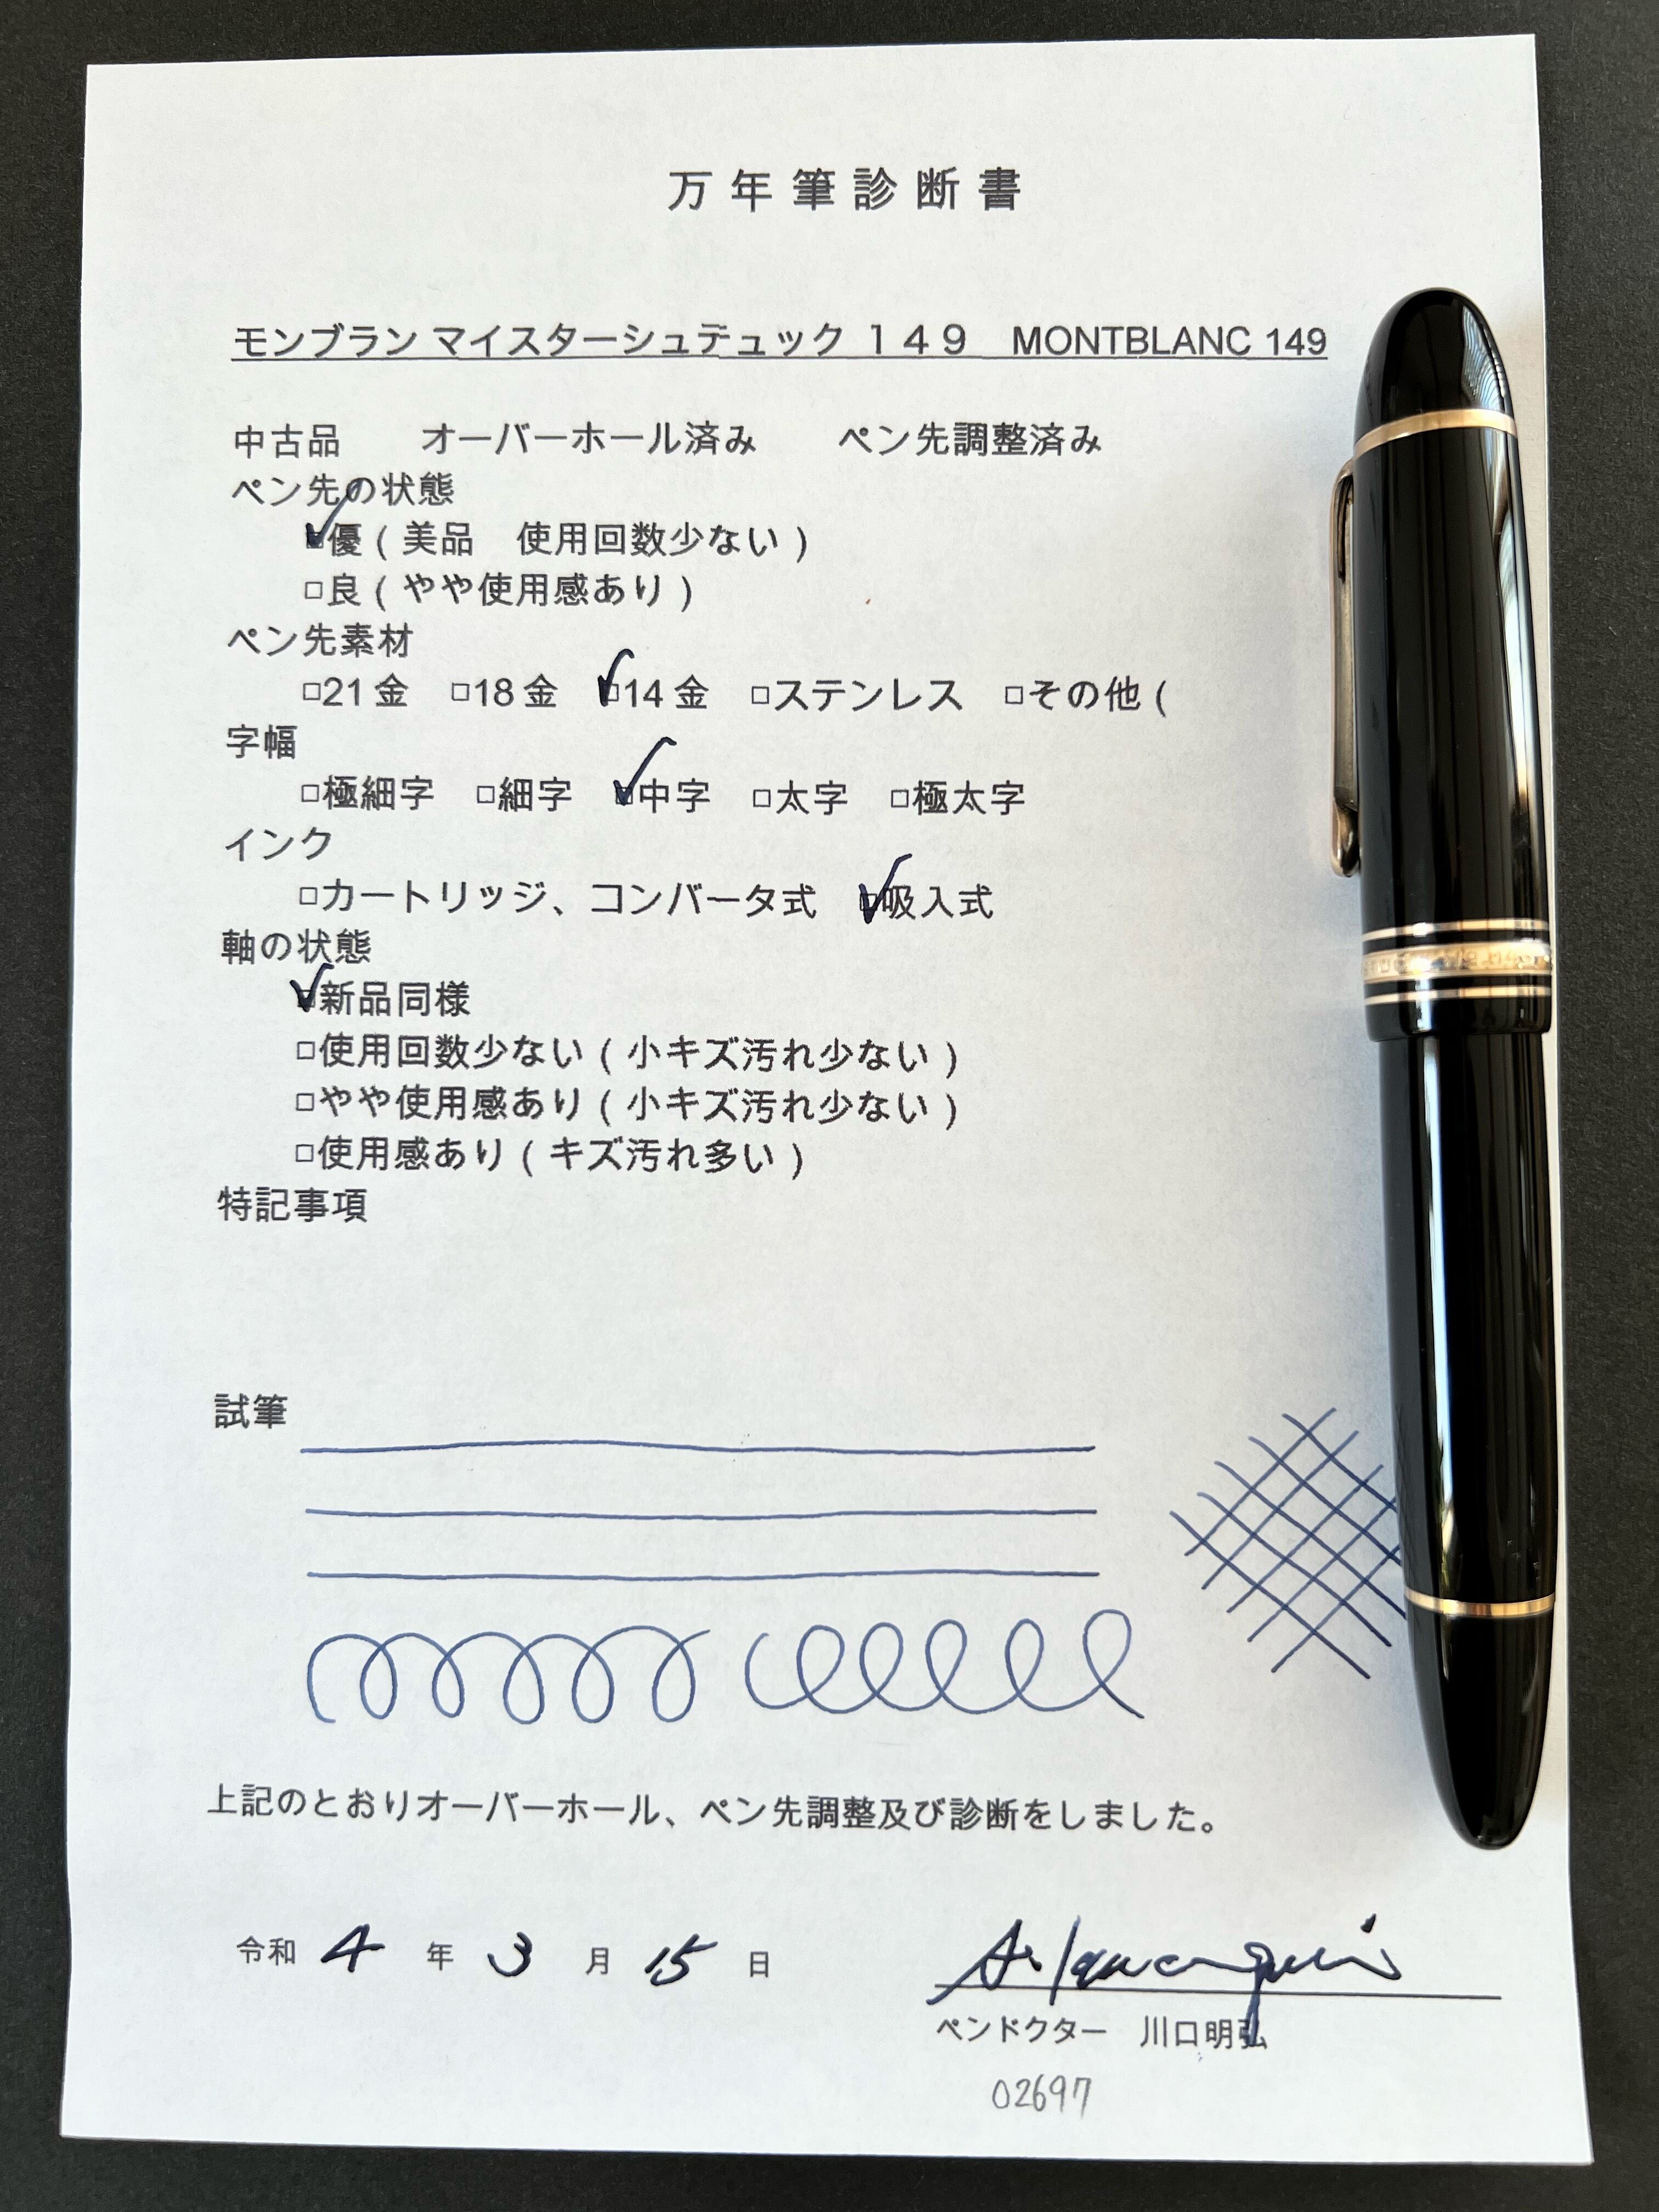 万年筆診断書
モンブラン マイスターシュテュック １４９　MONTBLANC 149
中古品　　オーバーホール済み　　ペン先調整済み
ペン先の状態
☑優（美品　使用回数少ない）
□良（やや使用感あり）
ペン先素材
□21金　□18金　☑14金　□ステンレス　□その他（
字幅
□極細字　□細字　☑中字　□太字　□極太字
インク
□カートリッジ、コンバータ式　☑吸入式
軸の状態
☑新品同様
□使用回数少ない（小キズ汚れ少ない）
□やや使用感あり（小キズ汚れ少ない）
□使用感あり（キズ汚れ多い）
特記事項
試筆
上記のとおりオーバーホール、ペン先調整及び診断をしました。
令和 4 年 3 月 15 日
A. Kawaguchi
ペンドクター　川口明弘
02697